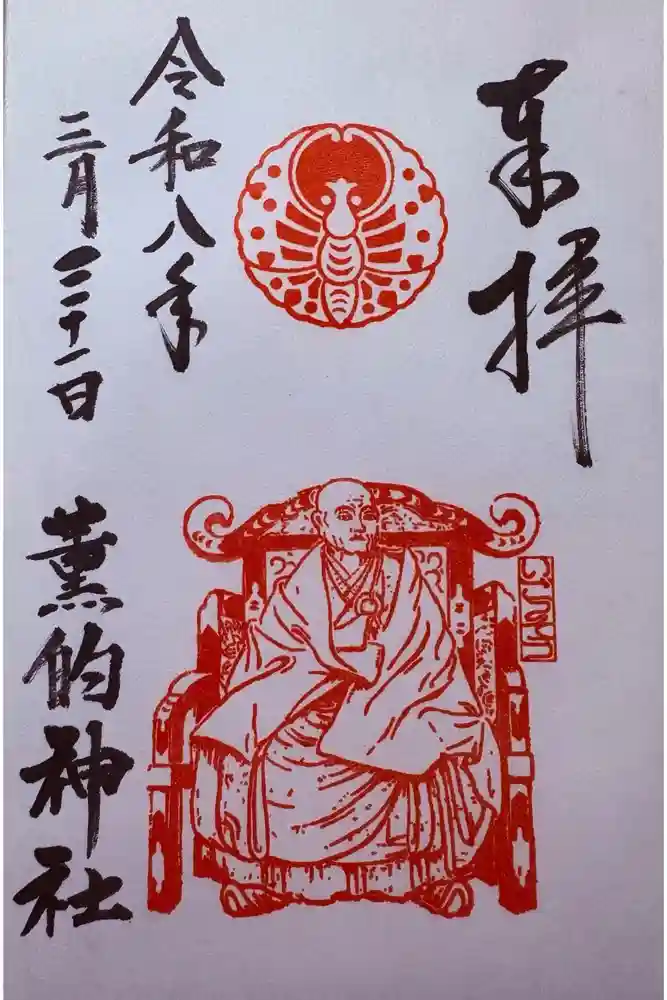 奉拝
令和八年
三月二十一日
薫的神社